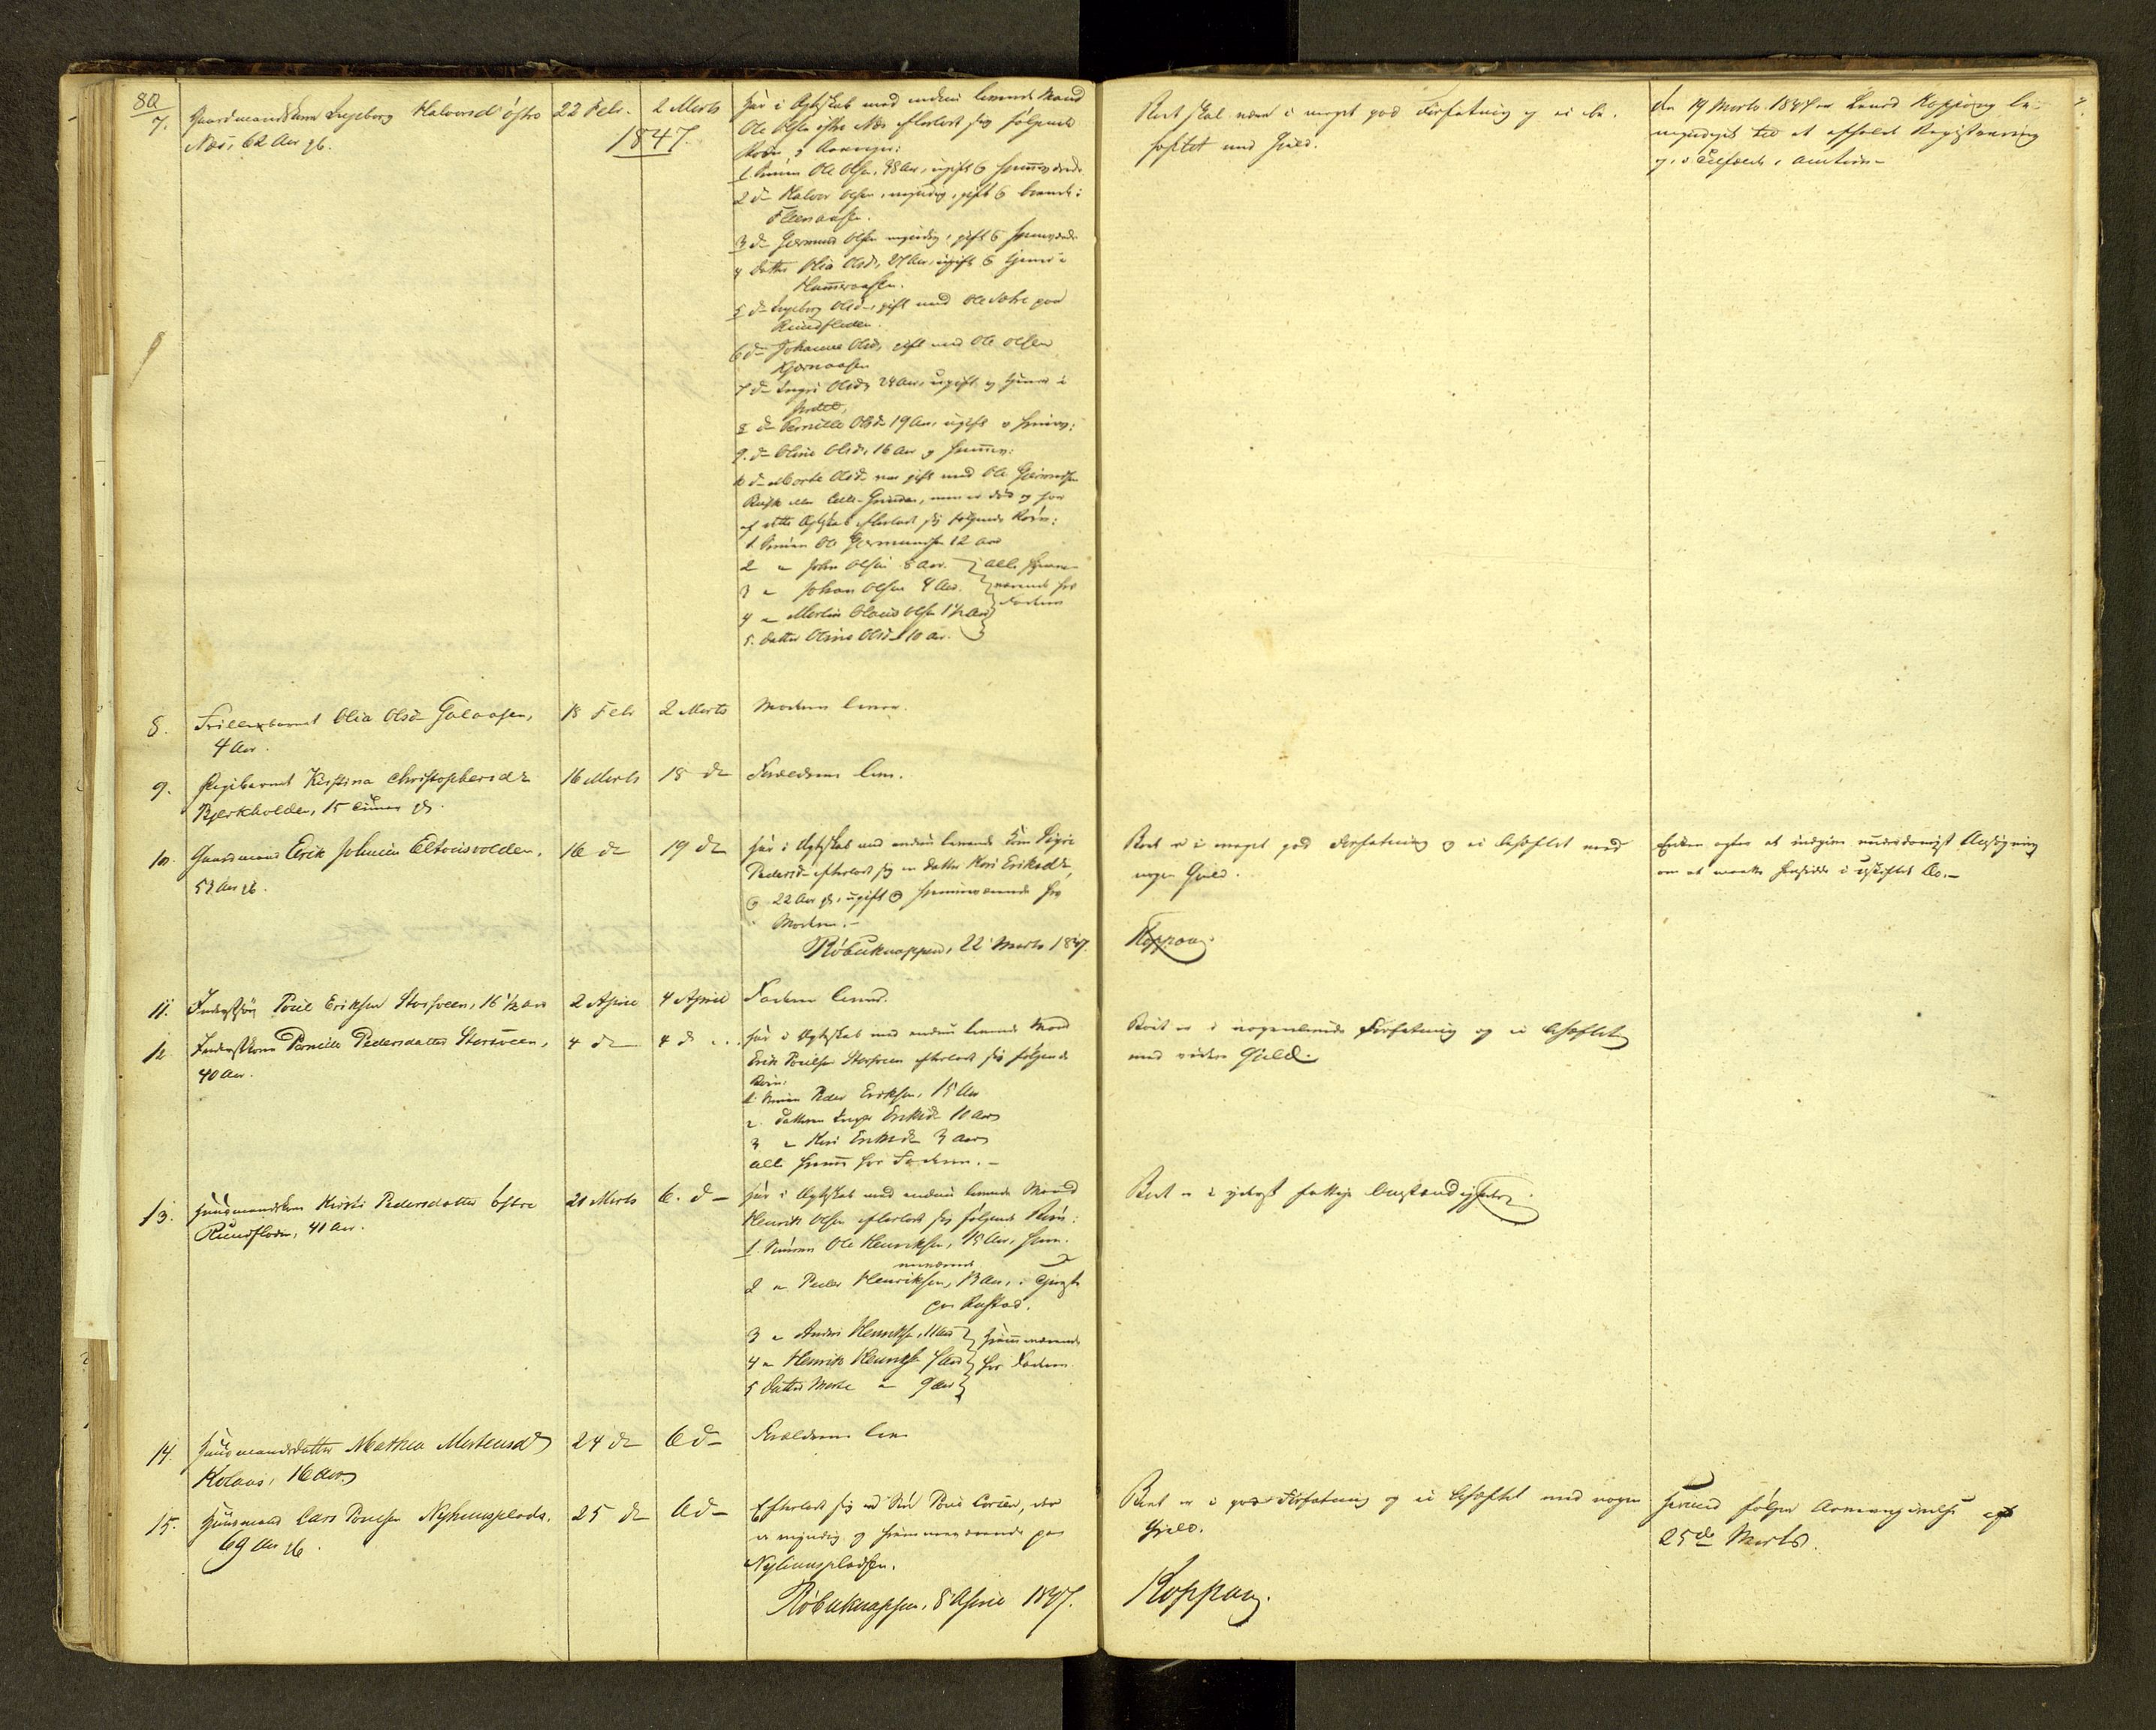 80
7. Gaardmandskone Ingeborg Halvorsd. østre
Næs, 62 Aar gl.
22 Febr.
2 Merts
1847.
har i Ægteskab med endnu levende Mand
Ole Olsen østre Næs efterladt sig følgende
Børn, 9 Arvinger:
1 Sønnen Ole Olsen, 38 Aar, ugift & hjemmeværende
2 do Halvor Olsen, myndig, gift & boende i
3 do Germund Olsen myndig, gift & hjemværende
4 Datter Olia Olsd., 27 Aar, ugift & tjener i
5 do Ingeborg Olsd., gift med Ole Sætre paa
Rundfloden.
6 do Johanne Olsd., gift med Ole Olsen
Kjernaasen
7 do Ingri Olsd., 24 Aar, ugift og tjener i
8 do Pernille Olsd. 19 Aar, ugift & hjemv:
9. do Oline Olsd., 16 Aar og hjemmev:
10 do Marte Olsd. var gift med Ole Germundsen
men er død og har
af dette Ægteskab efterladt sig følgende Børn:
1 Sønnen Ole Germundsen 12 Aar
2 " John Olsen 8 Aar.
3 " Johan Olsen 4 Aar.
4 " Martin Olaus Olsen 1½ Aar
5. Datter Olline Olsd. 10 Aar.
alle hjemme-
værende hos
Faderen
Boet skal være i meget god Forfatning og ei be-
hæftet med Gjeld.
den 19 Merts 1847 er Lensmd. Koppang be-
myndiget til at afholde Registrering
og, i Tilfælde, Auction
8. Barnet Olia Olsd. Galaasen,
4 Aar.
18 Febr
2 Merts
Moderen lever.
9. Pigebarnet Kirstina Christophersdr.
Bjerkholden, 15 Timer gl.
16 Merts
18 do
Forældrene leve.
10. Gaardmand Erik Johnsen Eltorisvolden,
53 Aar gl.
16 do
19 do
har i Ægteskab med endnu levende Kone Sigri
Pedersd. efterladt sig en Datter Kari Eriksdr.,
22 Aar gl., ugift & hjemmeværende hos
Moderen.
Røbæknappen, 22 Merts 1847.
Boet er i meget god Forfatning og ei behæftet med
nogen Gjeld.
Koppang.
Enken agter at indgive underdanigst Ansøgning
om at maatte hensidde i uskiftet Bo.
11. Poul Eriksen Storsveen, 16½ Aar
2 April
4 April
Faderen lever.
12. Pernille Pedersdatter Storsveen,
40 Aar.
4 do
4 do
har i Ægteskab med endnu levende Mand
Erik Poulsen Storsveen efterladt sig følgende
Børn:
1 Sønnen Peder Eriksen, 15 Aar
2. Datteren Inger Eriksd. 10 Aar
3 " Kari Eriksd. 3 Aar
alle hjemme hos Faderen.
Boet er i nogenlunde Forfatning og ei behæftet
med videre Gjeld.
13. Huusmandskone Kirsti Pedersdatter østre
Rundfloden, 41 Aar.
21 Merts
6. do
har i Ægteskab med endnu levende Mand
Henrik Olsen efterladt sig følgende Børn:
1. Sønnen Ole Henriksen, 15 Aar, hjem-
meværende
2 " Peder Henriksen, 13 Aar, i Tjeneste
paa
3 " Anders Henriksen, 11 Aar
4 " Henrik Henriksen 7 Aar
5 Datter Marte " 9 Aar
hjemmeværende
hos Faderen
Boet er i yderst fattige Omstændigheder.
14. Huusmandsdatter Mathea Mortensd.
Kolaas, 16 Aar.
24 do
6 do
Forældrene leve
15. Huusmand Lars Poulsen Nyhuusplads.
69 Aar gl.
25 do
6 do
Efterladt sig en Søn Poul Larsen, der
er myndig og hjemmeværende paa
Nyhuuspladsen.
Røbæknappen, 8 April 1847.
Boet er i god Forfatning og ei behæftet med nogen
Gjeld.
Koppang.
Herved følger Arveangivelse af
25de Merts.